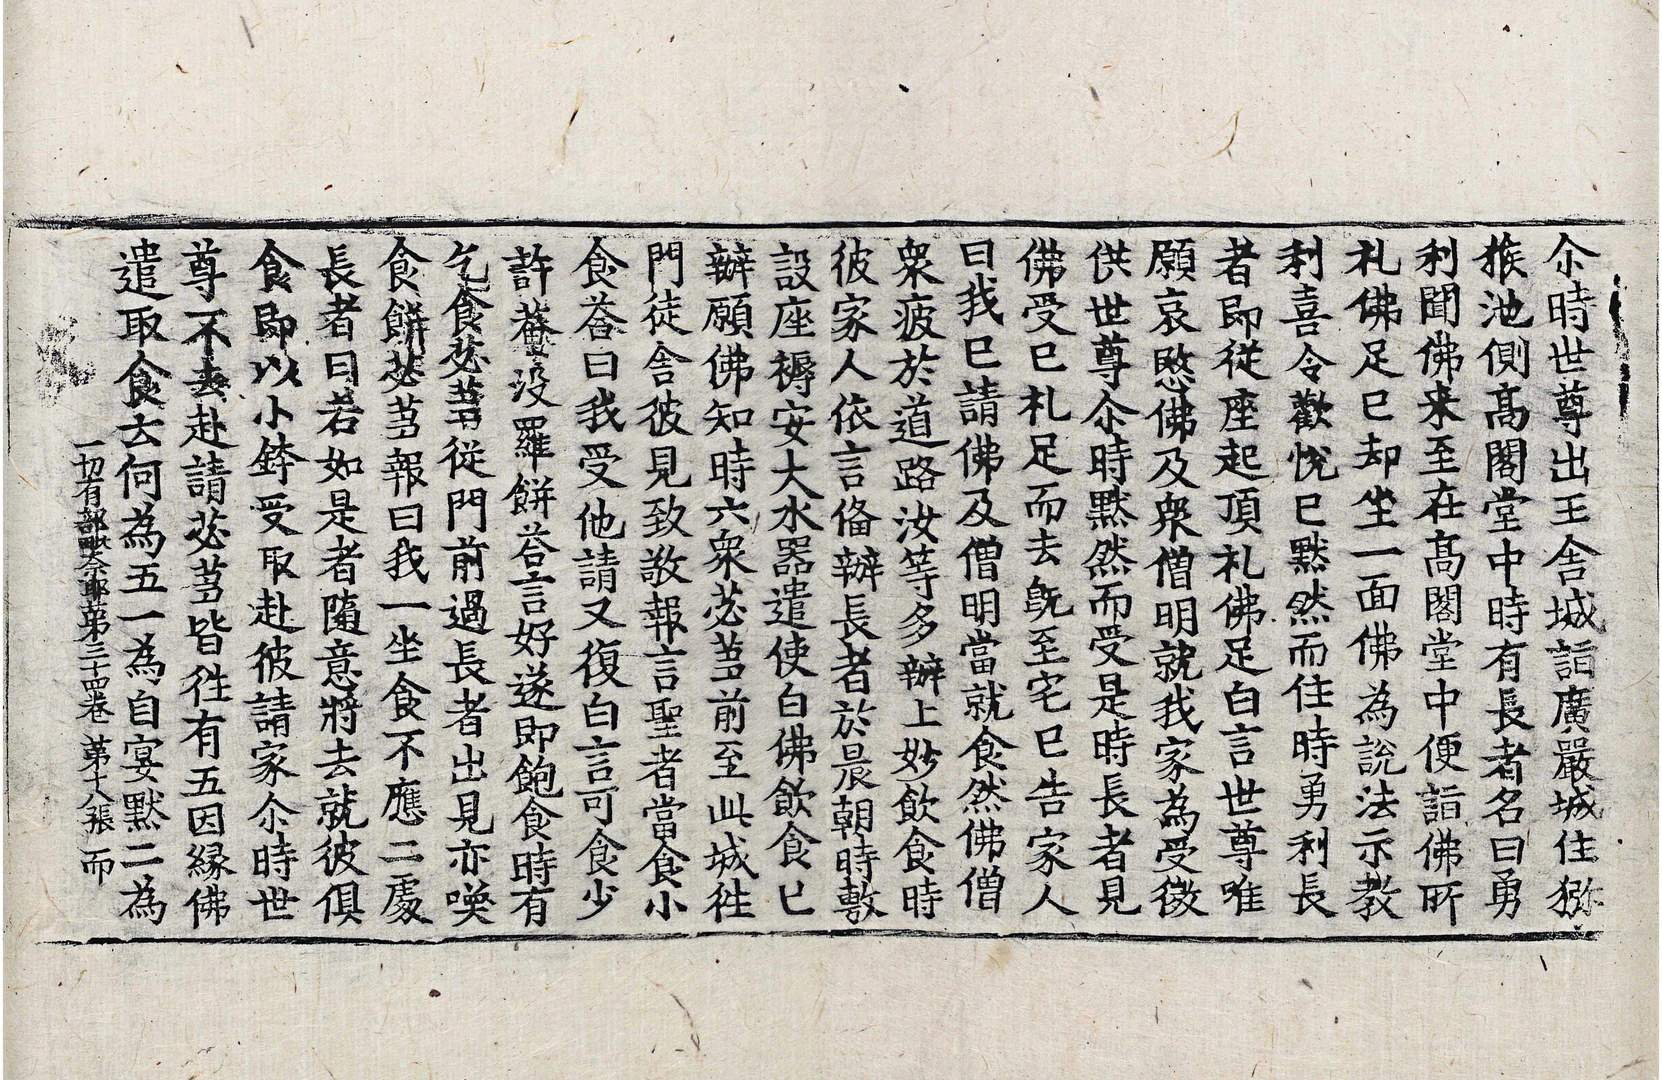 尒時世尊出王舍城詣廣嚴城住猕
猴池側髙閣堂中時有長者名曰勇
利聞佛来至在髙閣堂中便詣佛所
礼佛足已却坐一面佛為說法示教
利喜令歡悅已默然而住時勇利長
者即從座起頂礼佛足白言世尊唯
願哀愍佛及衆僧明就我家為受微
供世尊尒時默然而受是時長者見
佛受已礼足而去旣至宅已告家人
曰我已請佛及僧明當就食然佛僧
衆疲於道路汝等多辦上妙飲食時
彼家人依言俻辦長者於晨朝時敷
設座褥安大水器遣使白佛飲食已
辦願佛知時六衆苾芻前至此城徃
門徒舍彼見致敬報言聖者當食小
食荅曰我受他請又復白言可食少
許菴没羅餅荅言好遂即飽食時有
乞食苾芻從門前過長者出見亦喚
食餅苾芻報曰我一坐食不應二處
長者曰若如是者隨意將去就彼俱
食即以小鉢受取赴彼請家尒時世
尊不去赴請苾芻皆徃有五因緣佛
遣取食云何為五一為自宴默二為
一切有部毗奈耶第三十四卷 第十八張 而